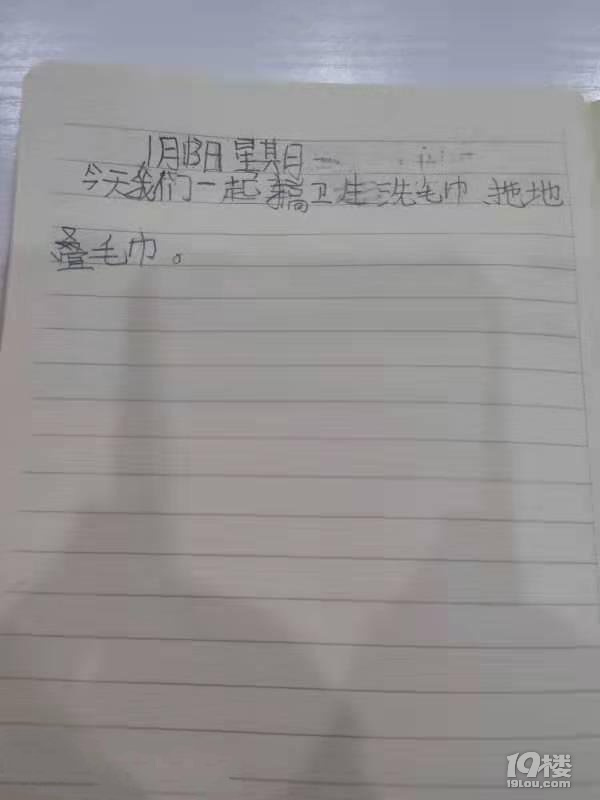 1月13日 星期一
今天我们一起搞卫生洗毛巾、拖地
叠毛巾。
19楼
19lou.com